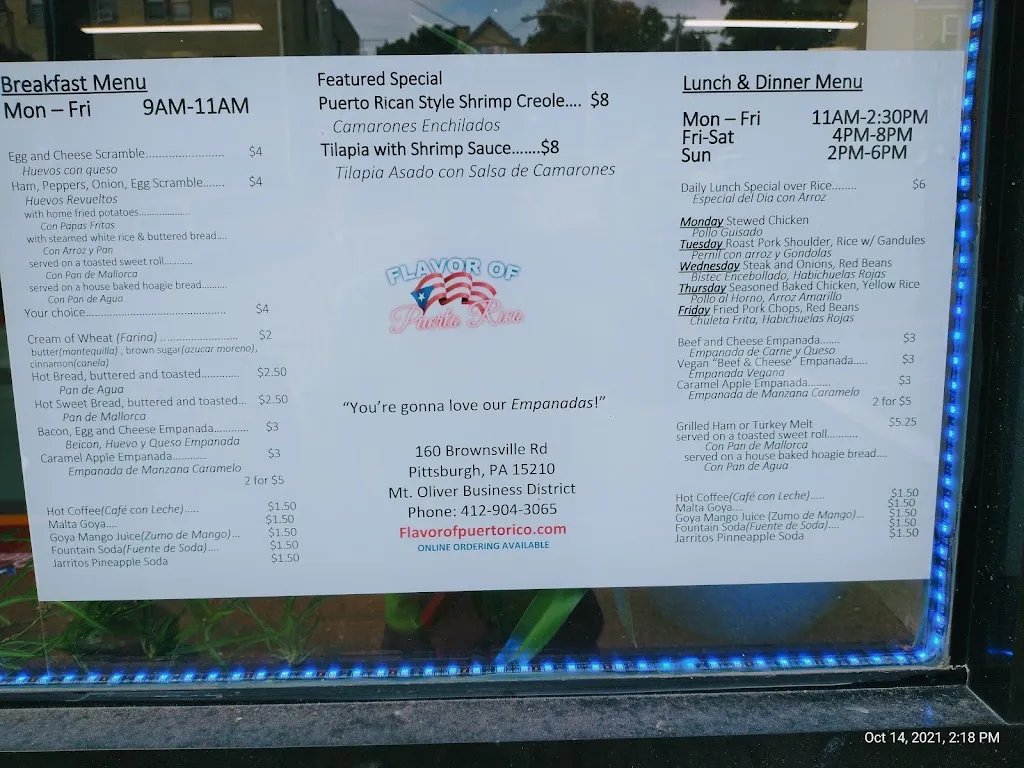 Breakfast Menu
Mon – Fri 9AM-11AM
Egg and Cheese Scramble........................ $4
Huevos con queso
Ham, Peppers, Onion, Egg Scramble....... $4
Huevos Revueltos
with home fried potatoes...................
Con Papas Fritas
with steamed white rice & buttered bread....
Con Arroz y Pan
served on a toasted sweet roll...........
Con Pan de Mallorca
served on a house baked hoagie bread.........
Con Pan de Agua
Your choice.......................................... $4
Cream of Wheat (Farina) ........................ $2
butter(mantequilla) , brown sugar(azucar moreno),
cinnamon(canela)
Hot Bread, buttered and toasted............ $2.50
Pan de Agua
Hot Sweet Bread, buttered and toasted... $2.50
Pan de Mallorca
Bacon, Egg and Cheese Empanada........... $3
Beicon, Huevo y Queso Empanada
Caramel Apple Empanada........... $3
Empanada de Manzana Caramelo
2 for $5
Hot Coffee(Café con Leche)..... $1.50
Malta Goya.... $1.50
Goya Mango Juice(Zumo de Mango)... $1.50
Fountain Soda(Fuente de Soda).... $1.50
Jarritos Pineapple Soda $1.50
Featured Special
Puerto Rican Style Shrimp Creole.... $8
Camarones Enchilados
Tilapia with Shrimp Sauce.......$8
Tilapia Asado con Salsa de Camarones
FLAVOR OF
Puerto Rico
“You’re gonna love our Empanadas!”
160 Brownsville Rd
Pittsburgh, PA 15210
Mt. Oliver Business District
Phone: 412-904-3065
Flavorofpuertorico.com
ONLINE ORDERING AVAILABLE
Lunch & Dinner Menu
Mon – Fri 11AM-2:30PM
Fri-Sat 4PM-8PM
Sun 2PM-6PM
Daily Lunch Special over Rice........ $6
Especial del Dia con Arroz
Monday Stewed Chicken
Pollo Guisado
Tuesday Roast Pork Shoulder, Rice w/ Gandules
Pernil con arroz y Gondolas
Wednesday Steak and Onions, Red Beans
Bistec Encebollado, Habichuelas Rojas
Thursday Seasoned Baked Chicken, Yellow Rice
Pollo al Horno, Arroz Amarillo
Friday Fried Pork Chops, Red Beans
Chuleta Frita, Habichuelas Rojas
Beef and Cheese Empanada...... $3
Empanada de Carne y Queso
Vegan “Beef & Cheese” Empanada..... $3
Empanada Vegana
Caramel Apple Empanada........ $3
Empanada de Manzana Caramelo
2 for $5
Grilled Ham or Turkey Melt $5.25
served on a toasted sweet roll...........
Con Pan de Mallorca
served on a house baked hoagie bread....
Con Pan de Agua
Hot Coffee(Café con Leche)..... $1.50
Malta Goya.... $1.50
Goya Mango Juice (Zumo de Mango)... $1.50
Fountain Soda(Fuente de Soda).... $1.50
Jarritos Pinneapple Soda $1.50
Oct 14, 2021, 2:18 PM